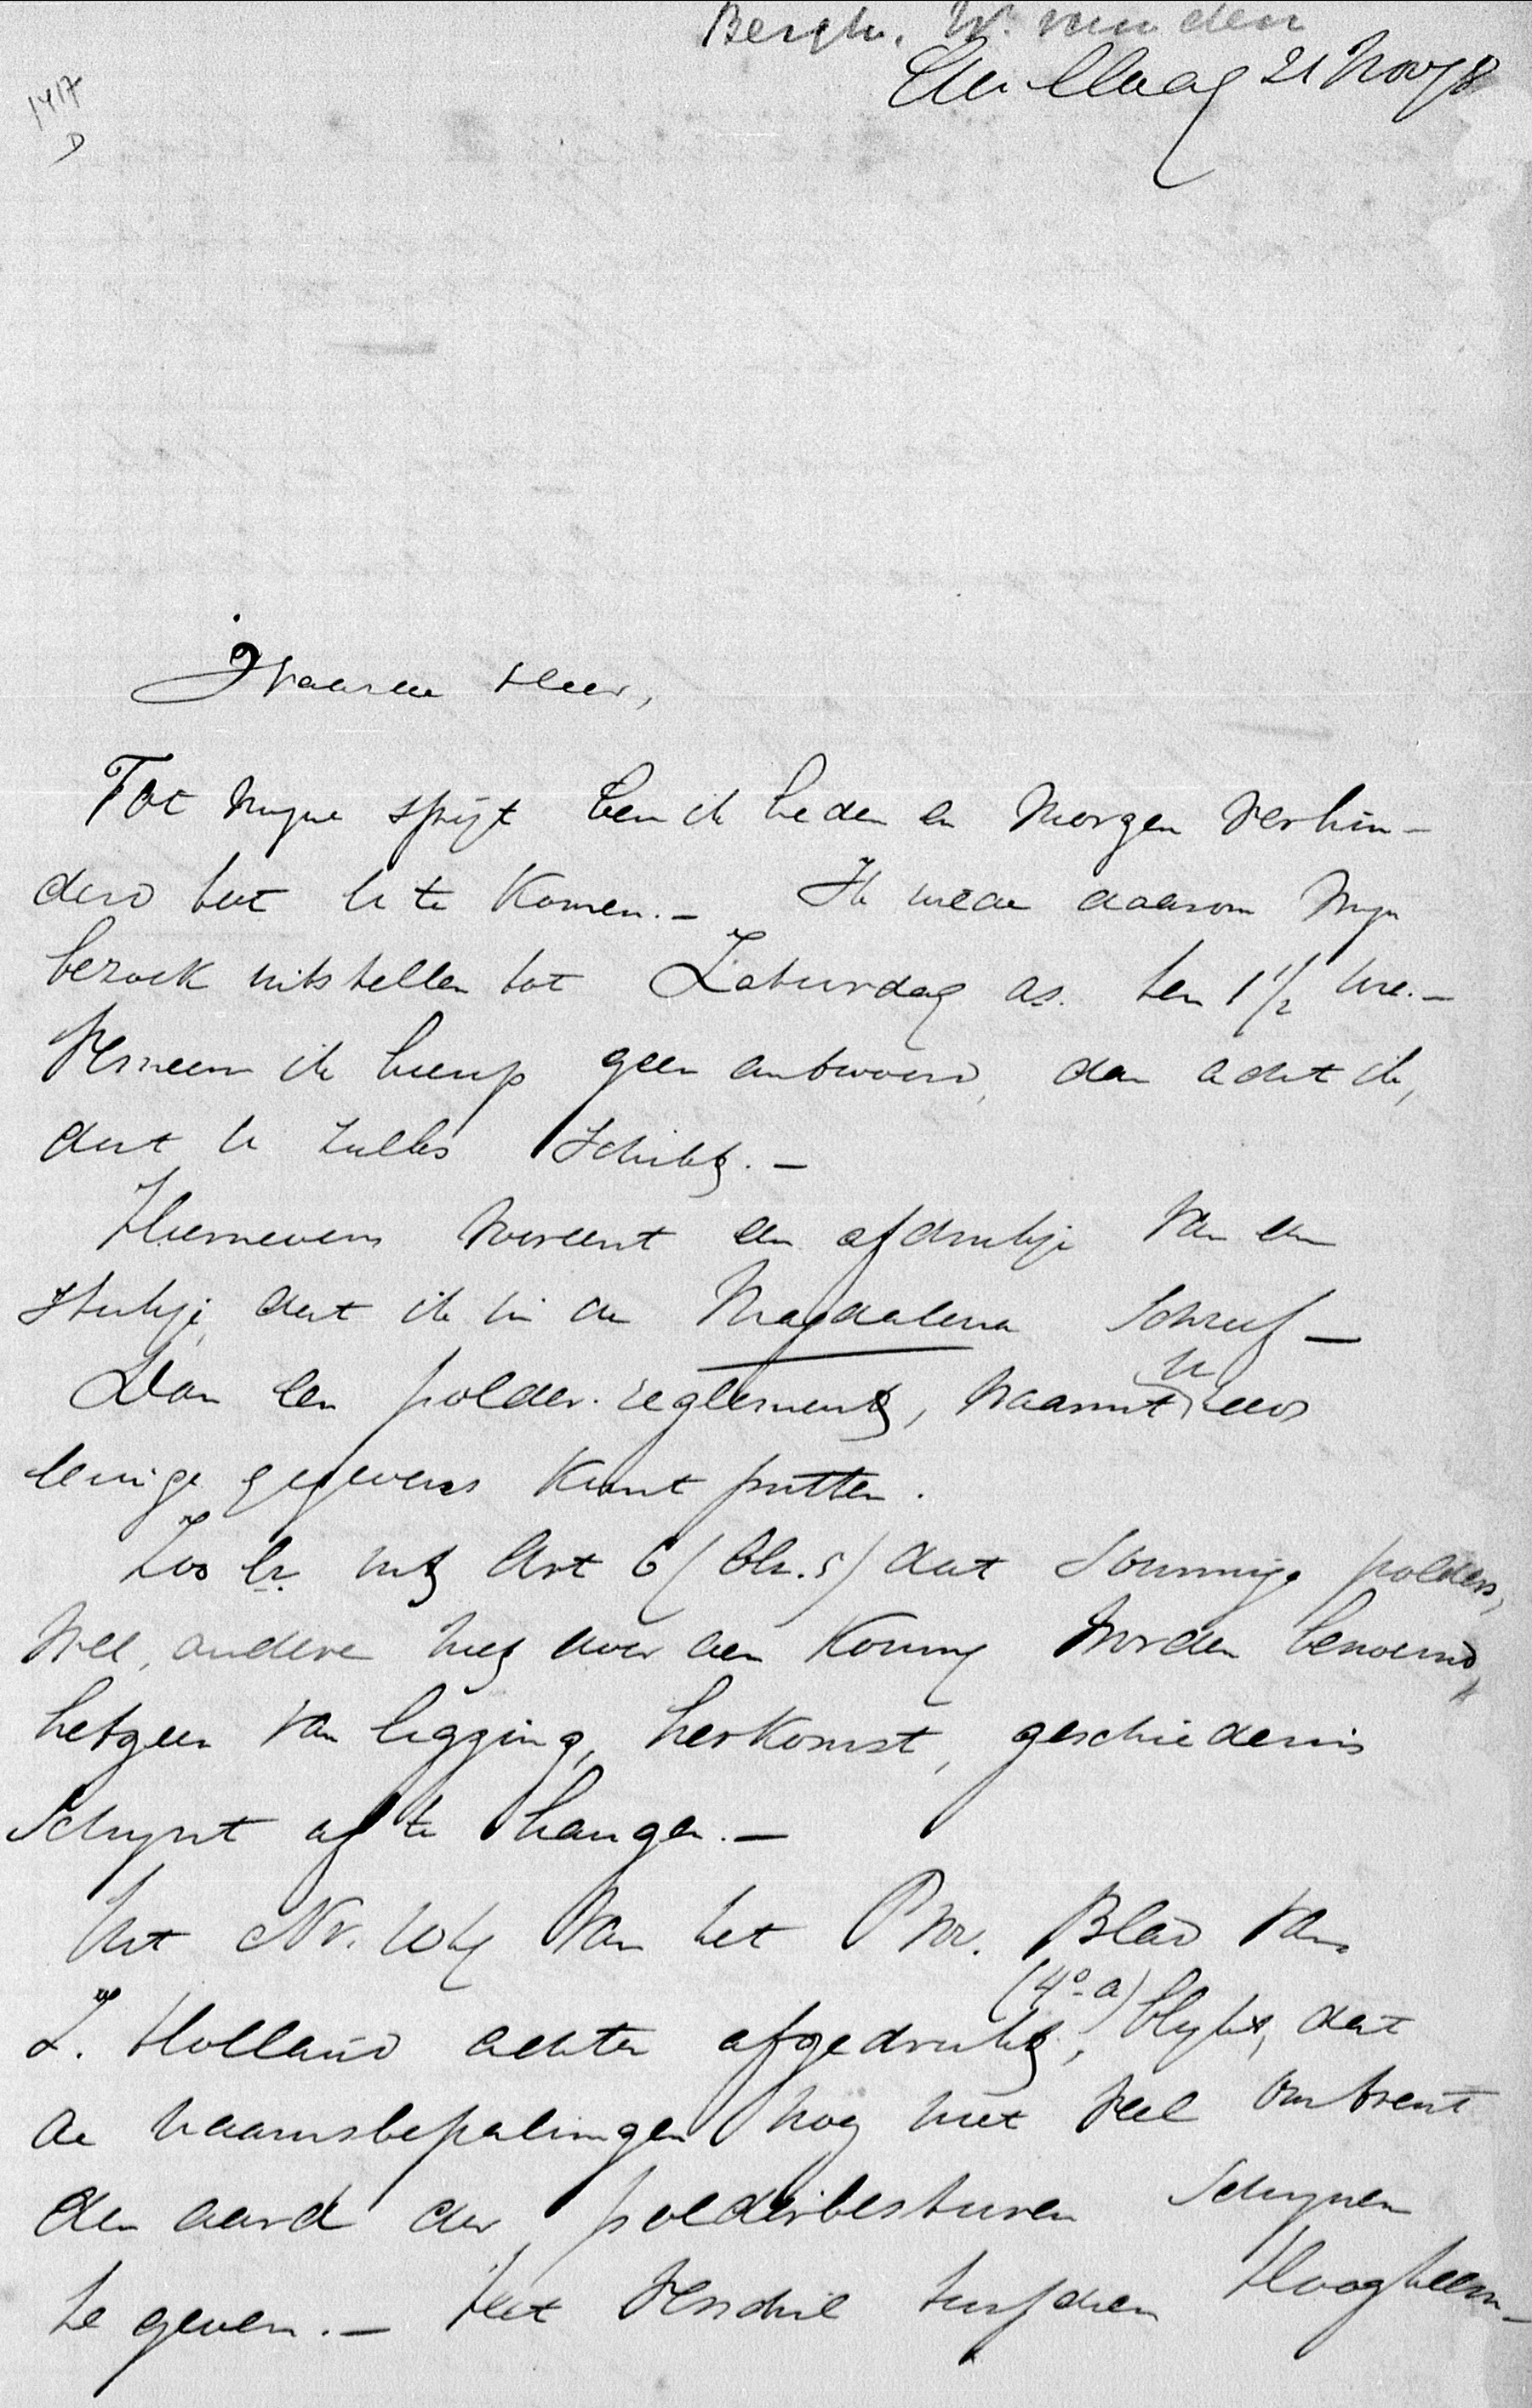 Bergh, W. van den
Den Haag 21 Nov 78
1417
D
Waarde Heer,
Tot mijne spijt ben ik heden en morgen verhin-
derd tot U te komen. - Ik mede daarom mijn
bezoek uitstellen tot Zaturdag as. ten 1 1/2 ure. -
Verneem ik hierop geen antwoord, dan acht ik,
dat U zulks schikt. -
Hiernevens vooreerst een afdrukje van een
stukje, dat ik in de Magdalena schreef -
Dan een polder-reglement, waaruit U
eenige gegevens kunt putten.
Zoo b. uit Art 6 (blz. 5) dat sommige polders,
wel, andere niet door den Koning worden benoemd,
hetgeen van ligging, herkomst, geschiedenis
schynt af te hangen. -
Uit Nr. 104 van het Prov. Blad van
Z. Holland achter afgedrukt, (4º-a) blykt, dat
de naamsbepalingen nog niet veel omtrent
den aard der polderbesturen schynen
te geven. - Het verschil tusschen Hoogheem-